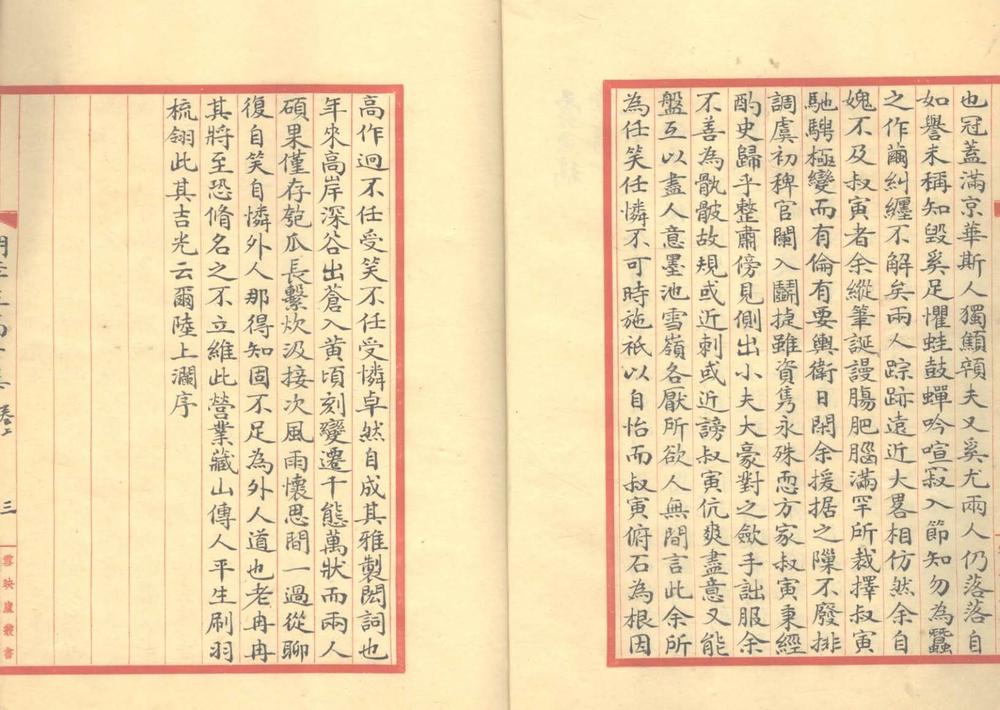 也冠蓋滿京華斯人獨顦顇夫又奚尤兩人仍落落自
如譽未稱知毀奚足懼蛙鼓蟬吟喧寂入節知勿為蠶
之作繭糾纏不解矣兩人踪跡遠近大畧相仿然余自
媿不及叔寅者余縱筆誕謾膓肥腦滿罕所裁擇叔寅
馳騁極變而有倫有要輿衛日閑余援据之隟不廢排
調虞初稗官闌入鬬捷雖資雋永殊恧方家叔寅秉經
酌史歸乎整肅傍見側出小夫大豪對之斂手詘服余
不善為骫骳故規或近刺或近謗叔寅伉爽盡意又能
盤互以盡人意墨池雪嶺各厭所欲人無間言此余所
為任笑任憐不可時施祇以自怡而叔寅俯石為根因
高作迥不任受笑不任受憐卓然自成其雅製閎詞也
年來高岸深谷出蒼入黄頃刻變遷千態萬狀而兩人
碩果僅存匏瓜長繫炊汲接次風雨懷思間一過從聊
復自笑自憐外人那得知固不足為外人道也老冉冉
其將至恐脩名之不立維此營業藏山傳人平生刷羽
梳翎此其吉光云爾陸上瀾序
卷上
三
雪映廬叢書